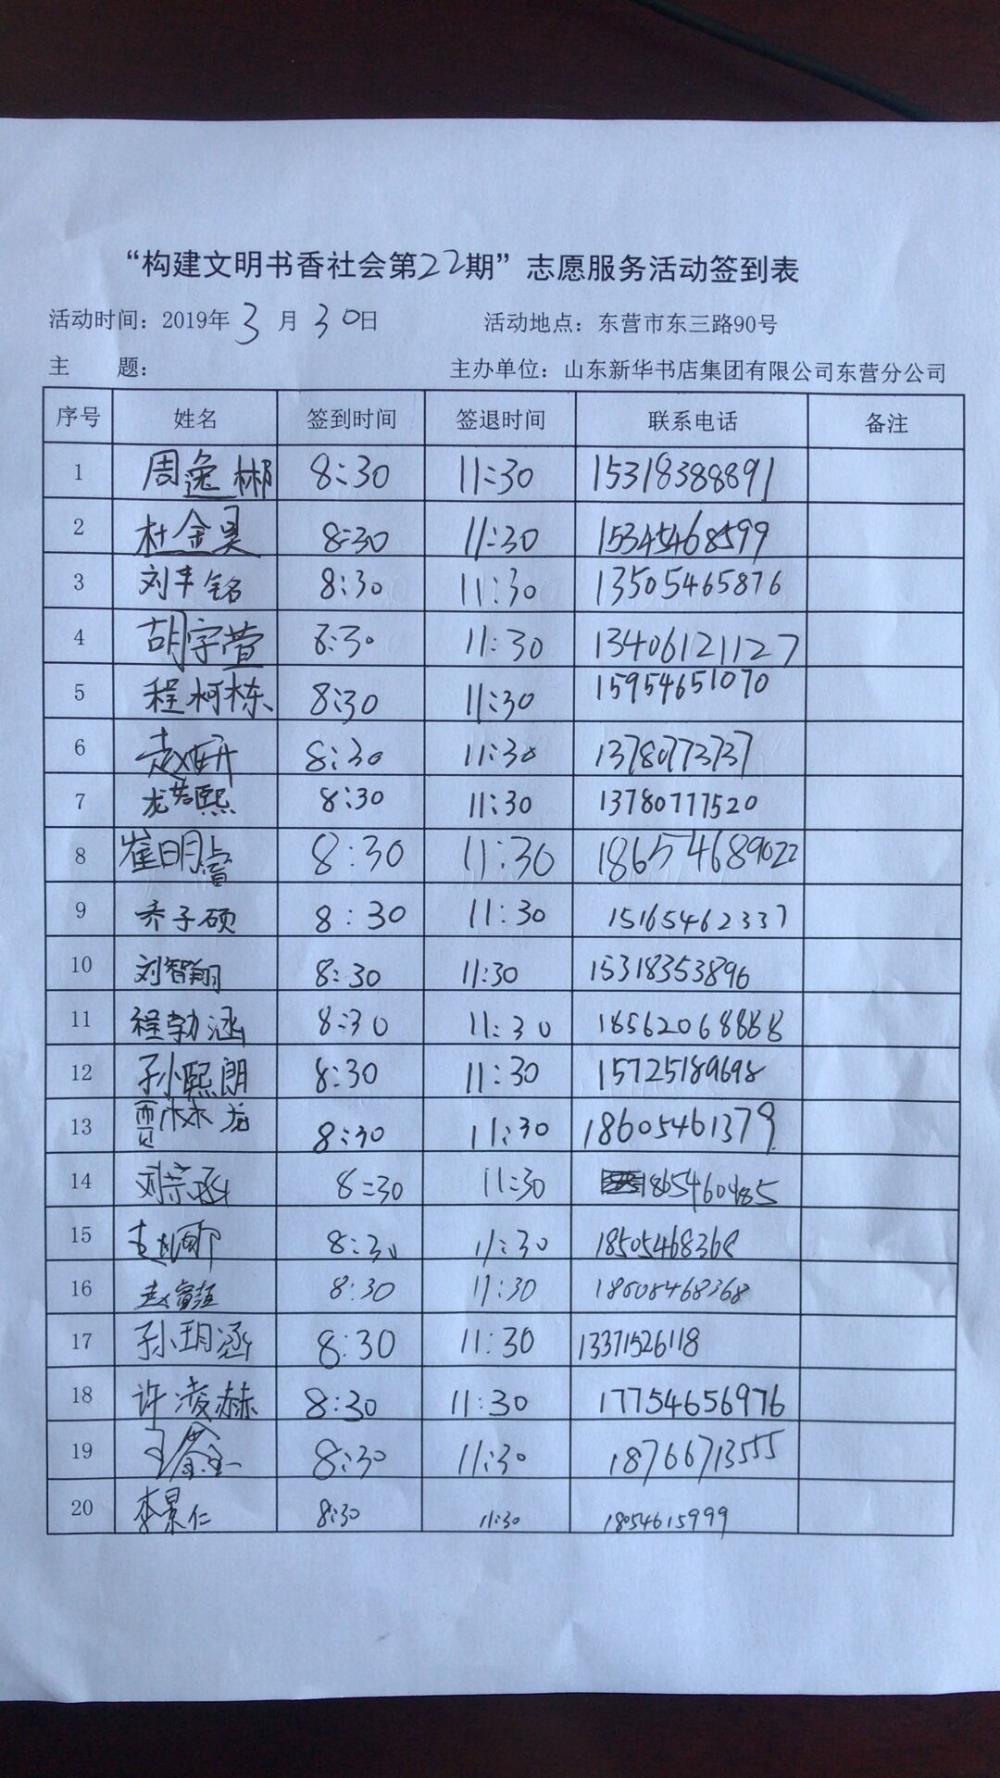 “构建文明书香社会第22期”志愿服务活动签到表
活动时间：2019年3月30日 活动地点：东营市东三路90号
主 题： 主办单位：山东新华书店集团有限公司东营分公司
序号 姓名 签到时间 签退时间 联系电话 备注
1 周逸彬 8:30 11:30 15318388891
2 杜金昊 8:30 11:30 15345468599
3 刘丰铭 8:30 11:30 13505465876
4 胡宇萱 8:30 11:30 13406121127
5 程柯栋 8:30 11:30 15954651070
6 赵妍 8:30 11:30 13780773737
7 龙若熙 8:30 11:30 13780777520
8 崔明睿 8:30 11:30 18654689022
9 乔子硕 8:30 11:30 15165462337
10 刘智翔 8:30 11:30 15318353896
11 程勃涵 8:30 11:30 18562068888
12 孙熙朗 8:30 11:30 15725189698
13 贾林龙 8:30 11:30 18605461379
14 刘宗涵 8:30 11:30 1865460485
15 8:30 11:30 18505468368
16 8:30 11:30 18505468368
17 孙玥涵 8:30 11:30 13371526118
18 许凌赫 8:30 11:30 17754656976
19 8:30 11:30 18766713555
20 李景仁 8:30 11:30 18054615999